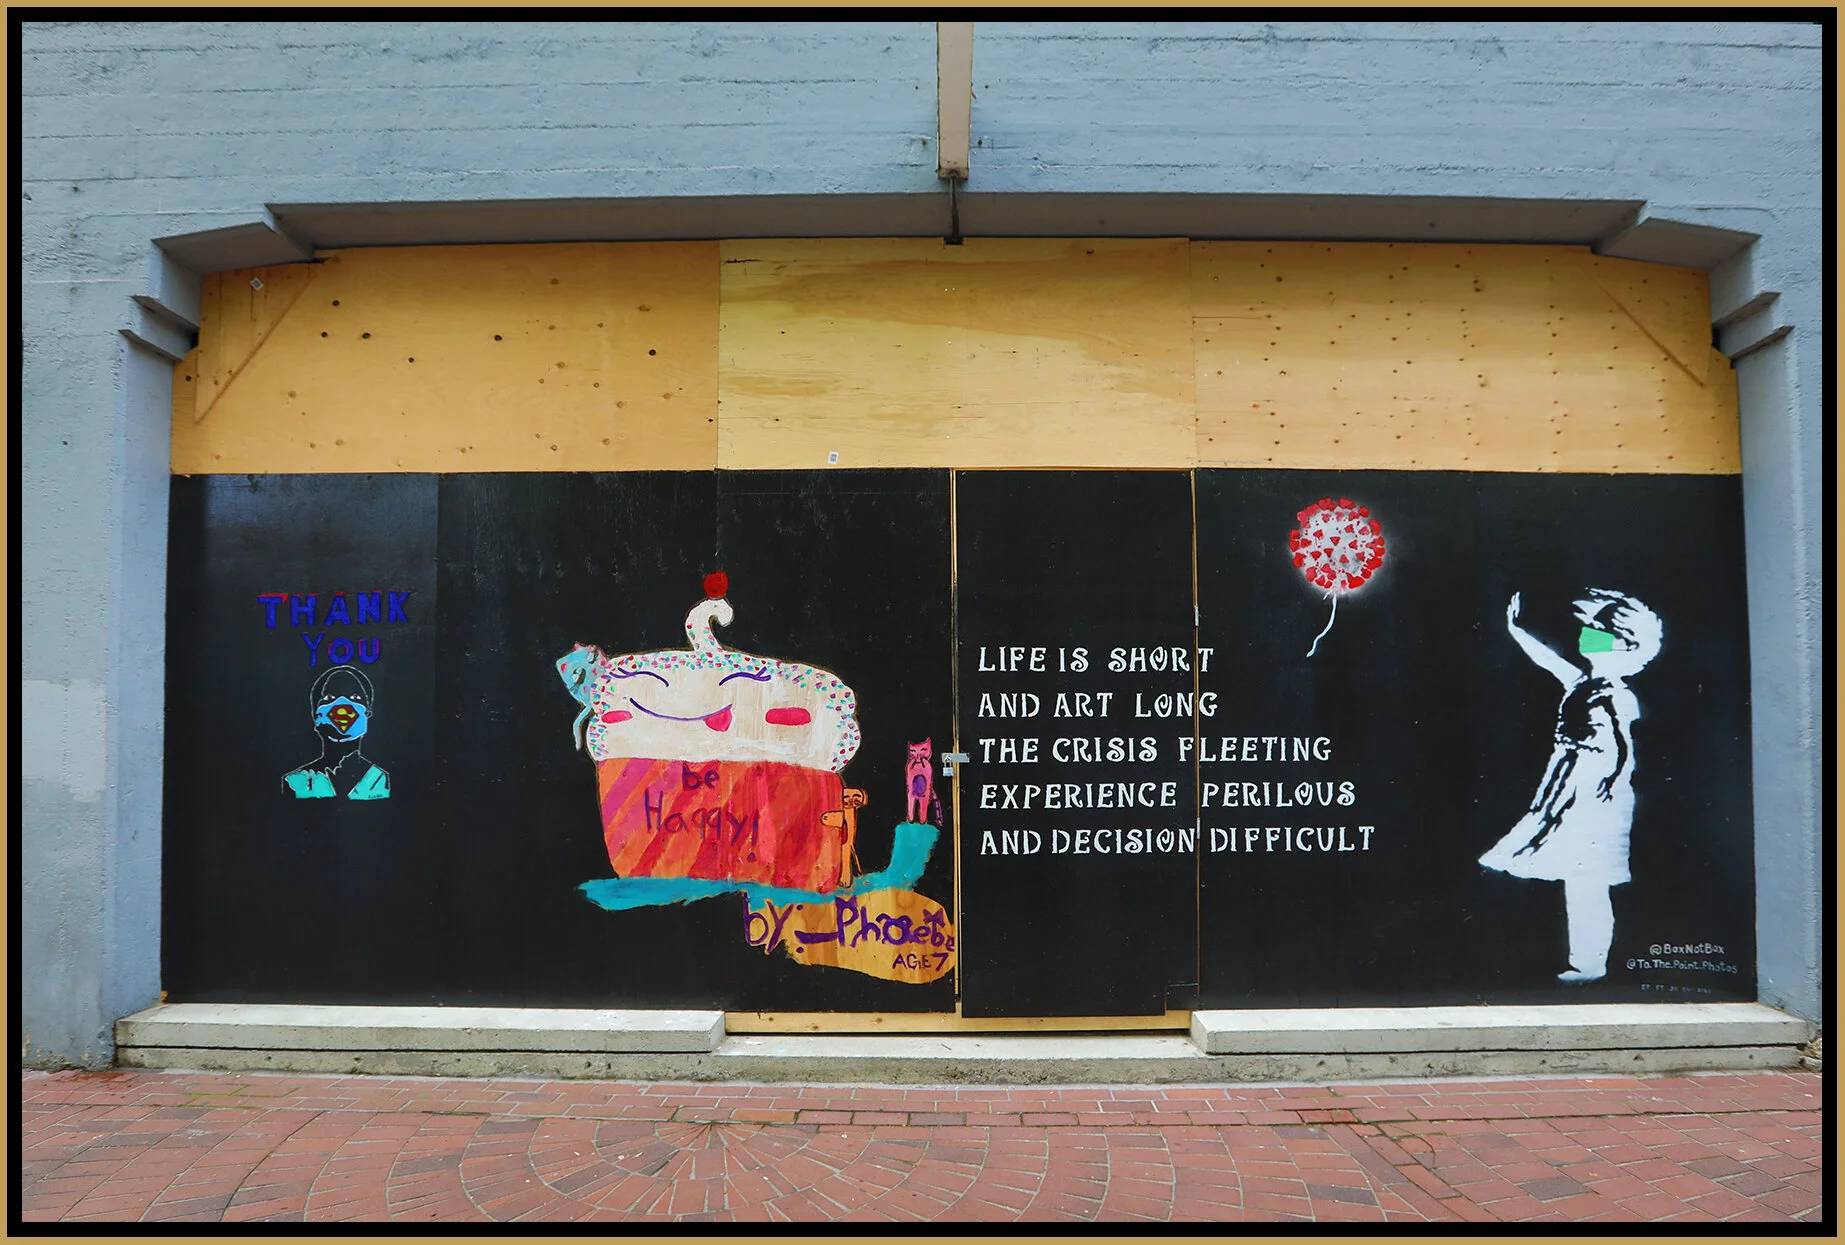 THANK
YOU
be
Happy!
by: Phoebe
AGE 7
LIFE IS SHORT
AND ART LONG
THE CRISIS FLEETING
EXPERIENCE PERILOUS
AND DECISION DIFFICULT
@BoxNotBox
@To.The.Point.Photos